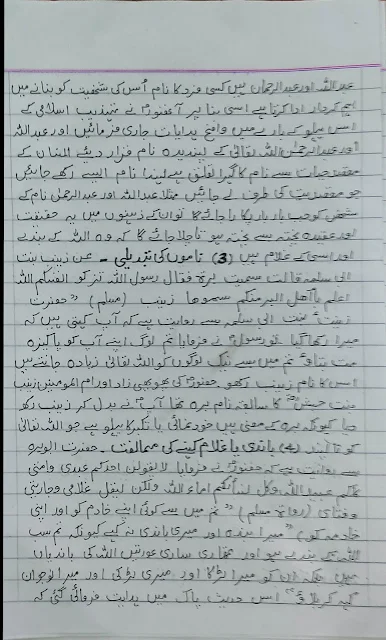 عبداللہ اور عبدالرحمان ہیں کسی فرد کا نام اُس کی شخصیت کو بنانے میں
اہم کردار ادا کرتا ہے اسی بنا پر آنحضورؐ نے تہذیب اسلامی کے
اس پہلو کے بارے میں واضح ہدایات جاری فرمائیں اور عبداللہ
اور عبدالرحمٰن اللہ تعالیٰ کے پسندیدہ نام قرار دیئے انسان کے
مقصد حیات سے نام کا گہرا تعلق ہے لہٰذا نام ایسے رکھے جائیں
جو مقصدیت کی طرف لے جائیں مثلاً عبداللہ اور عبدالرحمٰن نام کے
شخص کو جب بار بار پکارا جائے گا تو ان کے ذہنوں میں یہ حقیقت
اور عقیدہ پختہ سے پختہ ہوتا چلا جائے گا کہ وہ اللہ کے بندے
اور اسی کے غلام ہیں (3) ناموں کی تبدیلی ۔ عن زینب بنت
ابی سلمہ قالت سمیت برۃ فقال رسول اللہ تزکو انفسکم اللہ
اعلم باھل البر منکم سموھا زینب (مسلم) "حضرت
زینب بنت ابی سلمہ سے روایت ہے کہ آپ کہتی ہیں کہ
میرا رکھا گیا تو رسولؐ نے فرمایا تم لوگ اپنے آپ کو پاکیزہ
مت بتاؤ تم میں سے نیک لوگوں کو اللہ تعالیٰ زیادہ جانتے ہیں
اس کا نام زینب رکھو حضورؐ کی پھوپھی زاد اور ام المومنین زینب
بنت جحش کا سابقہ نام برہ تھا آپؐ نے بدل کر زینب رکھ
دیا کیونکہ برہ کے معنی میں خود نمائی یا تکبر کا پہلو ہے جو اللہ تعالیٰ
کو ناپسند (4) باندی یا غلام کہنے کی ممانعت ۔ حضرت ابوہریرہ
سے روایت ہے کہ حضورؐ نے فرمایا لایقولن احدکم عبدی وامتی
کلکم عبید اللہ وکل نسائکم اماء اللہ ولکن لیقل غلامی وجاریتی
وفتای (رواہ مسلم) "تم میں سے کوئی اپنے خادم کو اور اپنی
خادمہ کو "میرا بندہ اور میری باندی نہ کہے کیونکہ تم سب
اللہ کے بندے ہو اور تمہاری ساری عورتیں اللہ کی باندیاں
ہیں بلکہ ان کو میرا لڑکا اور میری لڑکی اور میرا نوجوان
کہہ کر بلاؤ" اس حدیث پاک میں ہدایت فرمائی گئی کہ